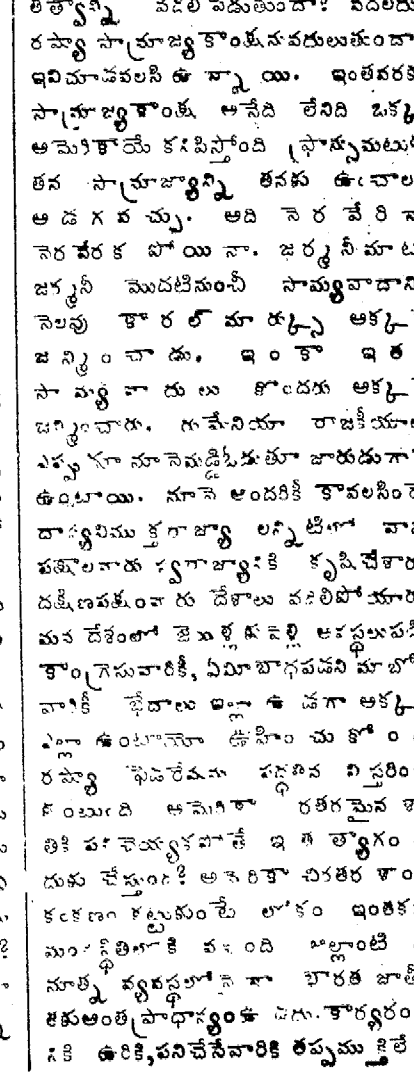 తత్వాన్ని వదలి పెడుతుందా? వదలదు
రష్యా సామ్రాజ్య కాంక్షను వదులుతుందా
ఇవి చూడవలసి ఉన్నాయి. ఇంతవరక
సామ్రాజ్యకాంక్ష అనేది లేనిది ఒక్క
అమెరికాయే కనిపిస్తోంది ఫ్రాన్సుమటు
తన సామ్రాజ్యాన్ని తనకు ఉంచాల
అడగవచ్చు. అది నెరవేరినా
నెరవేరక పోయినా. జర్మనీమాట
జర్మనీ మొదటినుంచీ సామ్యవాదాని
నెలవు కారల్ మార్క్సు అక్క
జన్మించాడు. ఇంకా ఇత
సామ్యవాదులు కొందరు అక్క
జన్మించారు. రుమేనియా రాజకీయా
ఎప్పుడూ నూనెమడ్డిఓడుతూ జారుడుగా
ఉంటాయి. నూనె అందరికీ కావలసిందే
దాస్యవిముక్తరాజ్యా లన్నిటిలో వా
పక్షాలవారు స్వరాజ్యానికి కృషిచేశార
దక్షిణపక్షంవారు దేశాలు వదిలిపోయార
మన దేశంలో జెయిళ్లకువెళ్లి అవస్థలుపడ
కాంగ్రెసువారికీ, ఏమీబాధపడని మాబో
వారికీ భేదాలు ఇల్లా ఉండగా అక్క
ఎల్లా ఉంటాయో ఊహించుకోం
రష్యా ఫెడరేషను పద్ధతిన విస్తరిం
కొంటుంది అమెరికా
తికి పని చెయ్యకపోతే ఇత త్యాగం
దుకు చేస్తుంది? అమెరికా చిరతర శాం
కంకణం కట్టుకుంటే లోకం ఇంతక
మంచిస్థితిలోకి వస్తుంది ఇల్లాంటి
నూత్న వ్యవస్థలోనైనా భారత జాతీ
తకుఅంత ప్రాధాన్యంఉండదు. కార్యరం
నికి ఉరికి,పనిచేసేవారికి తప్పముక్తిలే